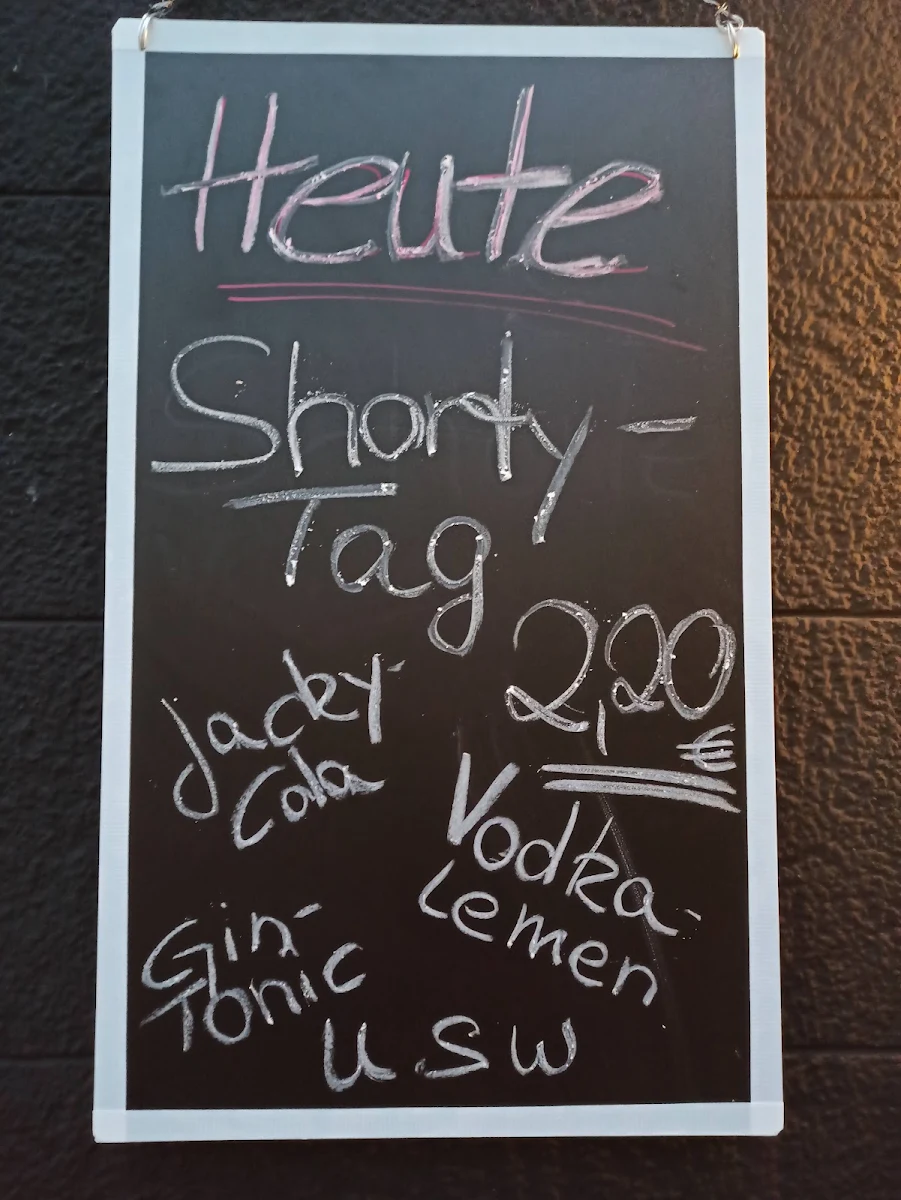 Heute
Shorty-
Tag
2,20
€
Jacky-
Cola
Vodka-
Lemen
Gin-
Tonic
usw